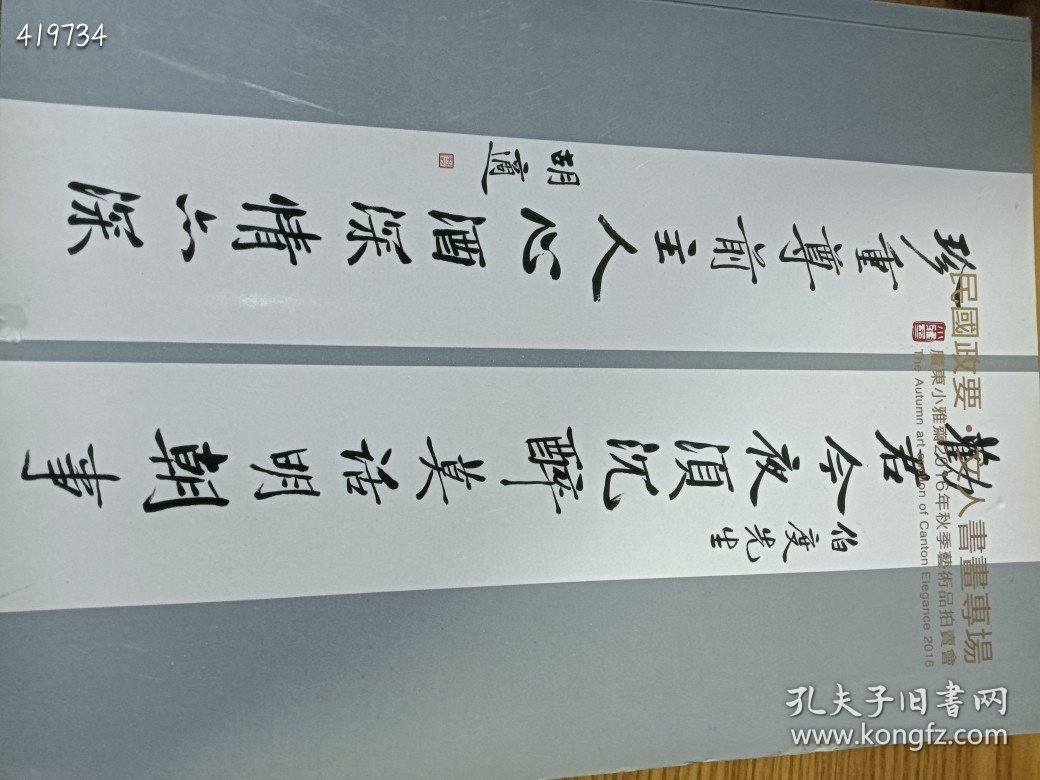 419734
勸君今夜須沉醉莫話明朝事
伯度先生
珍重尊前主人心酒深情亦深
胡適
民國政要·文人書畫專場
廣東小雅齋2016年秋季藝術品拍賣會
The Autumn art auction of Canton Elegance 2016
孔夫子旧书网
www.kongfz.com